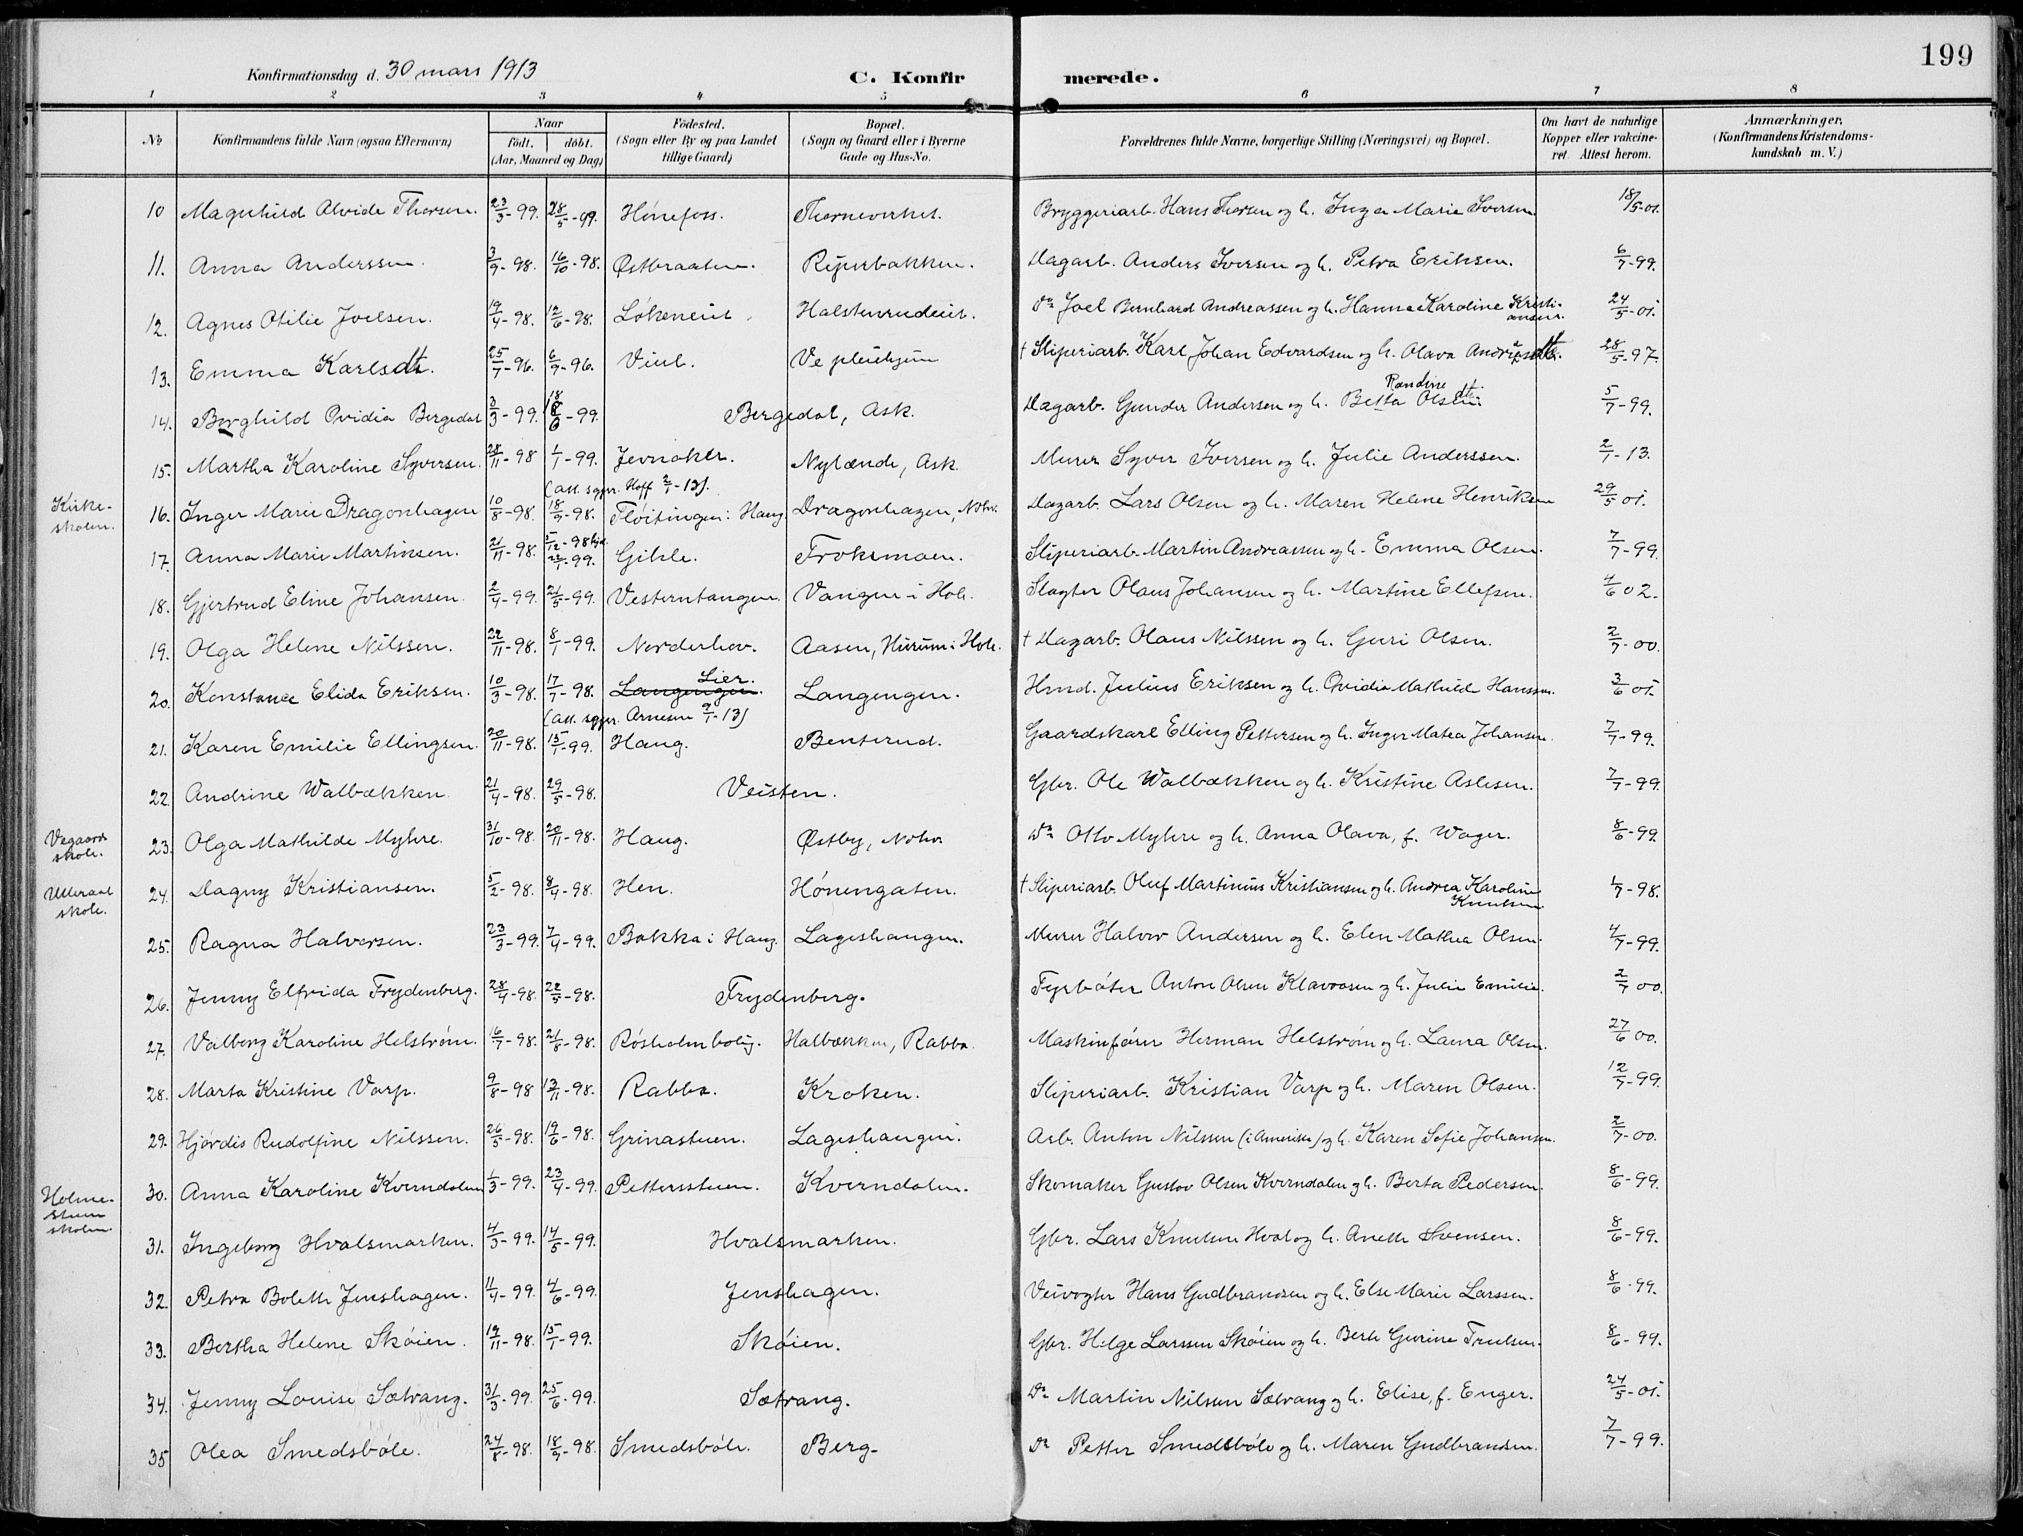 199
Konfirmationsdag d. 30 mars 1913
C. Konfirmerede.
1 2 3 4 5 6 7 8
No
Konfirmandens fulde Navn (ogsaa Efternavn)
Naar
födt. döbt.
(Aar, Maaned og Dag)
Födested.
(Sogn eller By og paa Landet
tillige Gaard)
Bopæl.
(Sogn og Gaard eller i Byerne
Gade og Hus-No.
Forældrenes fulde Navne, borgerlige Stilling (Næringsvei) og Bopæl.
Om havt de naturlige
Kopper eller vakcine-
ret. Attest herom.
Anmærkninger,
(Konfirmandens Kristendoms-
kundskab m. V.)
10 Magnhild Alvide Thorsen. 23/3-99. 28/5-99. Hönefoss. Thorneverket. Bryggeriarb. Hans Thorsen og h. Inga Marie Iversen 18/5-01.
11. Anna Anderssen. 3/9-98. 16/10-98. Østbraaten. Riperbakken. Dagarb. Anders Iversen og h. Petra Eriksen. 6/7-99.
12. Agnes Otilie Joelsen. 19/4-98. 12/6-98. Løkeneiet. Halstenrudeiet. Do Joel Bernhard Andreassen og h. Hanna Karoline Kristi-
ansen. 24/5-01.
13. Emma Karlsdt. 25/7-96. 6/9-96. Viul. Ve pleiehjem † Sliperiarb. Karl Johan Edvardsen og h. Olava Andersdt. 28/5-97.
14. Borghild Ovidia Bergedal 3/3-99. 18/6-99. Bergedal, Ask. Dagarb. Gunder Andersen og h. Betta Randine Olsdt. 5/7-99.
15. Martha Karoline Syversen. 28/11-98 1/1-99. Jevnaker. Nylænde, Ask. Murer Syver Iversen og h. Julie Anderssen. 2/1-13.
(att. sgpr. Hoff 2/1-13).
Kirke-
skolen.
16. Inger Marie Dragonhagen 10/8-98. 18/9-98. Fløitingen i Haug. Dragonhagen, Nohv. Dagarb. Lars Olsen og h. Maren Helene Henriksen 29/5 01.
17. Anna Marie Martinsen. 21/11-98. 5/12-98 hjd. 22/1-99. Gihle. Froksmoen. Sliperiarb. Martin Andreassen og h. Emma Olsen. 7/7-99.
18. Gjertrud Eline Johansen. 2/4-99. 21/5-99. Vesterntangen. Vangen i Hole. Slagter Olaus Johansen og h. Martine Ellefsen. 4/6 02.
19. Olga Helene Nilssen. 22/11-98. 8/1-99. Norderhov. Aasen, Hurum i Hole. † Dagarb. Olaus Nilssen og h. Guri Olsen. 2/7-00.
20. Konstance Elida Eriksen. 10/3-98. 17/7-98. Langengen. Lier. Langengen. Hmd. Julius Eriksen og h. Ovidia Mathilde Hanssen. 3/6 01.
(att. sgpr. Arnesen 9/1-13)
21. Karen Emilie Ellingsen. 20/11-98. 15/1-99. Haug. Benterud. Gaardskarl Elling Pettersen og h. Inger Matea Johansen. 7/7-99.
22. Andrine Walbækken. 21/4-98. 29/5-98. Veisten. Gbr. Ole Walbækken og h. Kristine Aslesen. 7/7-99.
Vegaard
skole.
23. Olga Mathilde Myhre. 31/10-98. 20/11-98. Haug. Østby, Nohv. Do Otto Myhre og h. Anna Olava, f. Wager. 8/6-99.
Ulleraal
skole.
24. Dagny Kristiansen. 5/2-98. 8/4-98. Hen. Hönengaten. † Sliperiarb. Oluf Martinius Kristiansen og h. Andrea Karoline
Knutsen 1/7-98.
25. Ragna Halvorsen. 23/3-99. 7/4-99. Bakka i Haug. Lageshaugen. Murer Halvor Andersen og h. Elen Mathea Olsen. 4/7-99.
26. Jenny Elfrida Frydenberg. 28/4-98. 22/5-98. Frydenberg. Fyrböter Anton Olsen Klavoosen og h. Julie Emilie. 2/7 00.
27. Valborg Karoline Helström. 16/7-98. 21/8-98. Rösholmbolig. Halbækken, Rabba. Maskinförer Herman Helström og h. Laura Olsen. 27/6 00.
28. Marta Kristine Varp. 9/8-98 13/11-98. Rabba. Kroken. Sliperiarb. Kristian Varp og h. Maren Olsen. 12/7-99.
29. Hjördis Rudolfine Nilssen. 26/5-98. 19/6-98. Grinastuen. Lageshaugen. Arb. Anton Nilssen (i Amerika) og h. Karen Sofie Johansen. 2/7-00.
Holme-
stuen
skolen.
30. Anna Karoline Kverndalen 1/3-99. 23/4-99. Petterstuen. Kverndalen. Skomaker Gustav Olsen Kverndalen og h. Berta Pedersen. 8/6-99.
31. Ingeborg Hvalsmarken. 4/3-99. 14/5-99. Hvalsmarken. Gbr. Lars Knutsen Hval og h. Anette Svensen. 8/6-99.
32. Petra Bolette Jenshagen. 11/4-99. 4/6-99. Jenshagen. Veivogter Hans Gudbrandsen og h. Else Marie Larssen. 8/6-99.
33. Bertha Helene Sköien. 19/11-98. 15/1-99. Sköien. Gbr. Helge Larssen Sköien og h. Berte Gurine Truelsen. 8/6-99.
34. Jenny Louise Sætrang. 31/3-99. 25/6-99. Sætrang. Do Martin Nilsen Sætrang og h. Elise, f. Enger. 24/5-01.
35 Olea Smedsböle. 24/8-98. 18/9-98. Smedsböle. Berg. Do Petter Smedsböle og h. Maren Gudbrandsen. 7/7-99.